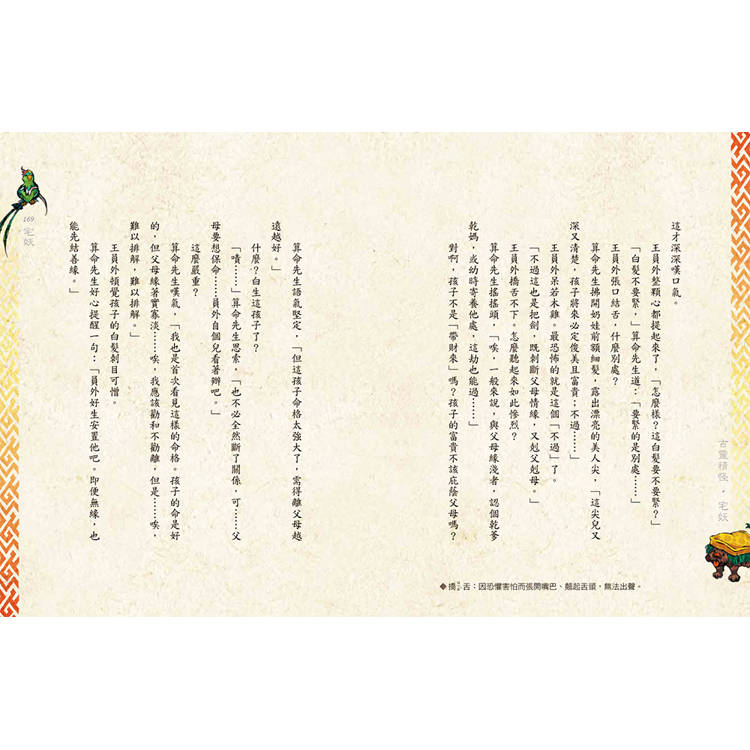 古靈精怪・宅妖
這才深深嘆口氣。
王員外整顆心都提起來了，「怎麼樣？這白髮要不要緊？」
「白髮不要緊，」算命先生道：「要緊的是別處……」
王員外張口結舌，什麼別處？
算命先生拂開奶娃前額細髮，露出漂亮的美人尖，「這尖兒又
深又清楚，孩子將來必定俊美且富貴；不過……」
王員外呆若木雞。最恐怖的就是這個「不過」了。
「不過這也是把劍，既刺斷父母情緣，又剋父剋母。」
王員外撟舌不下。怎麼聽起來如此慘烈？
算命先生搖搖頭，「唉，一般來說，與父母緣淺者，認個乾爹
乾媽，或幼時寄養他處，這劫也能過……」
對啊，孩子不是「帶財來」嗎？孩子的富貴不該庇蔭父母嗎？
◆撟舌：因恐懼害怕而張開嘴巴、翹起舌頭，無法出聲。
算命先生語氣堅定，「但這孩子命格太強大了，需得離父母越
遠越好。」
什麼？白生這孩子了？
「嘖……」算命先生思索，「也不必全然斷了關係，可……父
母要想保命……員外自個兒看著辦吧。」
這麼嚴重？
算命先生嘆氣，「我也是首次看見這樣的命格。孩子的命是好
的，但父母緣著實寡淡……唉，我應該勸和不勸離，但是……唉，
難以排解，難以排解。」
王員外頓覺孩子的白髮刺目可憎。
算命先生好心提醒一句：「員外好生安置他吧。即便無緣，也
能先結善緣。」
169・宅妖